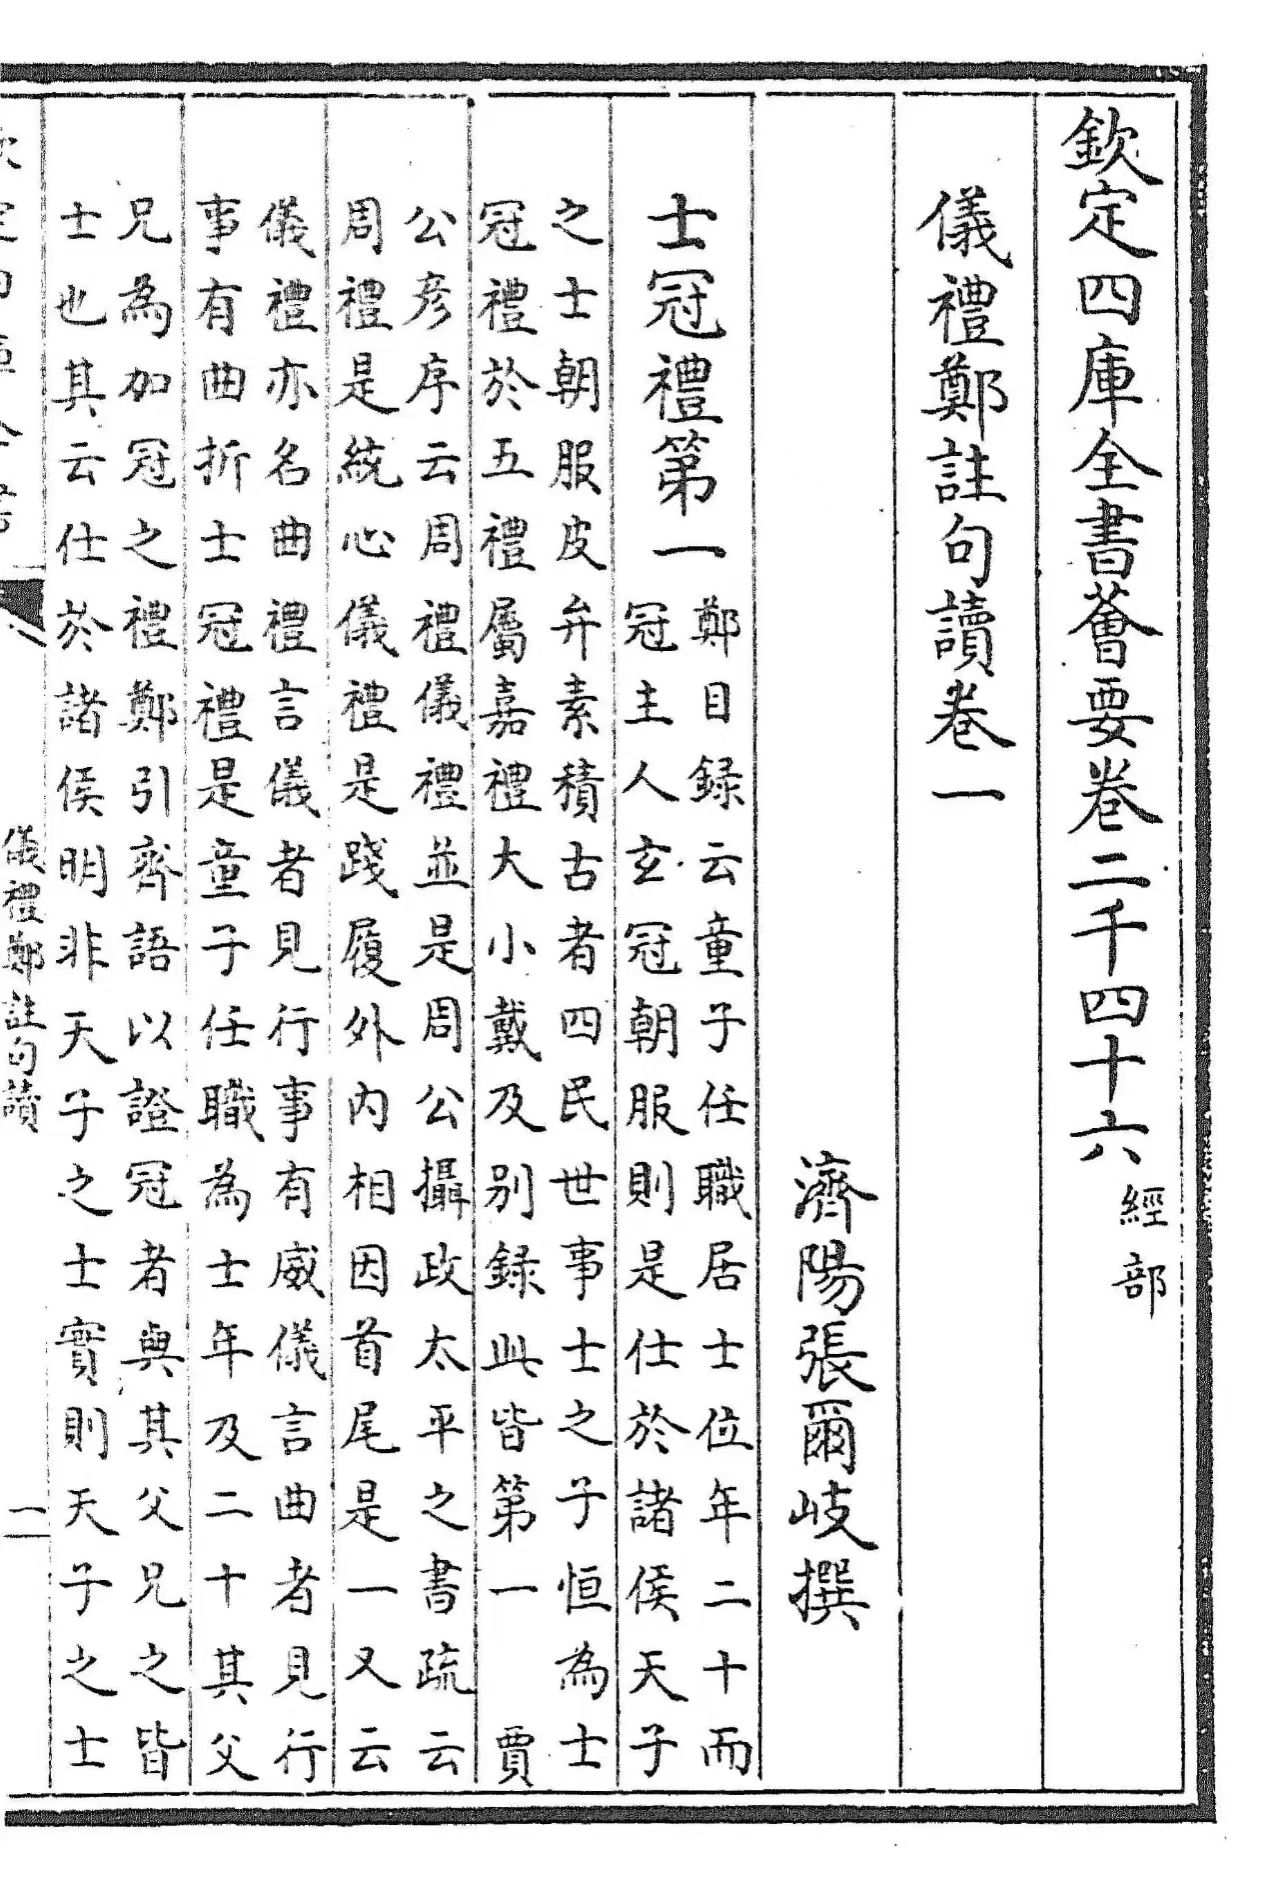 欽定四庫全書薈要卷二千四十六經部
儀禮鄭註句讀卷一
濟陽張爾岐撰
士冠禮第一
鄭目録云童子任職居士位年二十而
冠主人玄冠朝服則是仕於諸侯天子
之士朝服皮弁素積古者四民世事士之子恒為士
冠禮於五禮屬嘉禮大小戴及别録此皆第一 賈
公彦序云周禮儀禮並是周公攝政太平之書疏云
周禮是統心儀禮是踐履外內相因首尾是一又云
儀禮亦名曲禮言儀者見行事有威儀言曲者見行
事有曲折士冠禮是童子任職為士年及二十其父
兄為加冠之禮鄭引齊語以證冠者與其父兄之皆
士也其云仕於諸侯明非天子之士實則天子之士
儀禮鄭註句讀
一